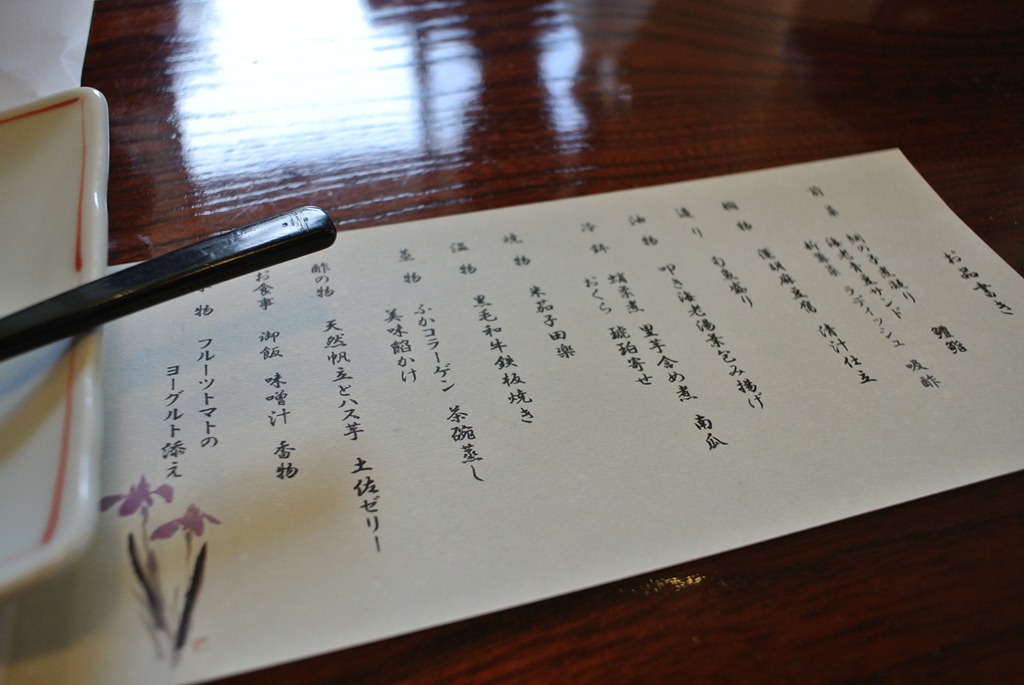 お品書き
前菜 鯛の子煮凍り 雛鮨
海老黄身サンド
新蓴菜 ラディッシュ 吸酢
椀物 蓬胡麻豆腐 清汁仕立
造り お魚盛り
油物 叩き海老湯葉包み揚げ
冷鉢 蛸柔煮 里芋含め煮 南瓜
おくら 琥珀寄せ
焼物 米茄子田楽
温物 黒毛和牛鉄板焼き
蒸物 ふかコラーゲン 茶碗蒸し
美味餡かけ
酢の物 天然帆立とハス芋 土佐ゼリー
お食事 御飯 味噌汁 香物
物 フルーツトマトの
ヨーグルト添え